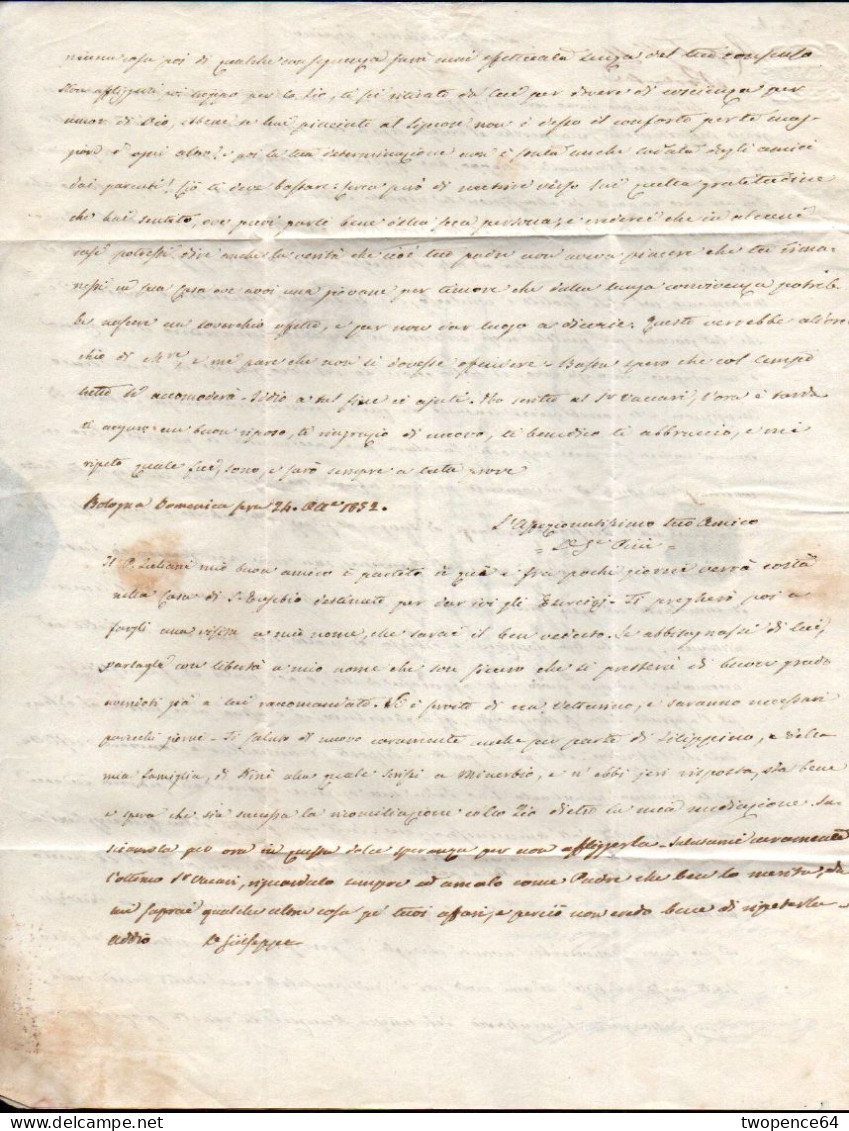 niuna cosa poi di qualche conseguenza sarà mai effettuata senza del tuo consenso
Non affliggerti poi troppo per lo Zio, ti sei ritirato da lui per dovere di coscienza per
amor di Dio, ebbene se hai piaciuto al Signore non è desso il conforto per te mag-
giore d'ogni altro? e poi la tua determinazione non è stata anche lodata dagli amici
dai parenti! Ciò ti deve bastare: cerca però di nutrire verso lui quella gratitudine
che hai sentito, ove puoi parla bene della sua persona, e crederei che in alcuni
casi potessi dire anche la verità che cioè tuo padre non aveva piacere che tu rima-
nessi in sua casa ove avvi una giovane per timore che dalla lunga convivenza potreb-
be nascere un soverchio affetto, e per non dar luogo a dicerie. Questo verrebbe all'orec-
chio di , e me pare che non si dovesse offendere. Basta spero che col tempo
tutto si accomoderà. Iddio a tal fine ci ajuti. Ho scritto al Sr Vaccari, l'ora è tarda
ti auguro un buon riposo, ti ringrazio di nuovo, ti benedico ti abbraccio, e mi
ripeto quale fui, sono, e sarò sempre a tutte prove
Bologna Domenica sera 24. 1852.
L'Affezionatissimo tuo Amico
Il P. Giuliani mio buon amico è partito di quà e fra pochi giorni verrà costà
nella Casa di S. Eusebio destinato per dar ivi gli Esercizi. Ti pregherei poi a
fargli una visita a mio nome, che sarai il ben veduto. Se abbisognassi di lui,
parlagli con libertà a mio nome che son sicuro che si presterà di buon grado
avendoti già a lui raccomandato. Si è servito di un Vetturino, e saranno necessari
parecchi giorni. Ti saluto di nuovo caramente anche per parte di Filippino, e della
mia famiglia, di Nini alla quale scrissi a Minerbio, e n'ebbi jeri risposta, sta bene
e spera che sia successa la riconciliazione collo Zio dietro la mia mediazione. La-
sciamola per ora in questa dolce speranza per non affliggerla. Salutami caramente
l'ottimo Sr Vaccari, riguardalo sempre ed amalo come Padre che ben lo merita, da
lui saprai qualche altra cosa pe' tuoi affari, e perciò non credo bene di ripeterla
addio Giuseppe
twopence64